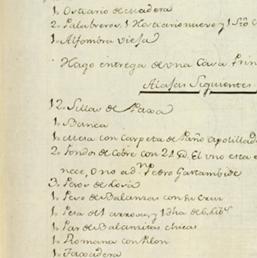 1. Ostiario de madera
2. Palabreros, 1. Hostiario nuevo y 1. 
1. Alfombra vieja
Hago entrega de una Casa Prin
Alajas Siguientes
12. Sillas de Baxa
1. Banca
1. mesa con carpeta de Paño apolillad
2. fondos de Cobre con 21 El uno esta
nece, o no ad Pedro Garambide
3. de
1. Peso de Balanzas con su Cruz
1. Pesa del arrova, y
1. Par de Balancitas chicas
1. Romana con Pilon
1.